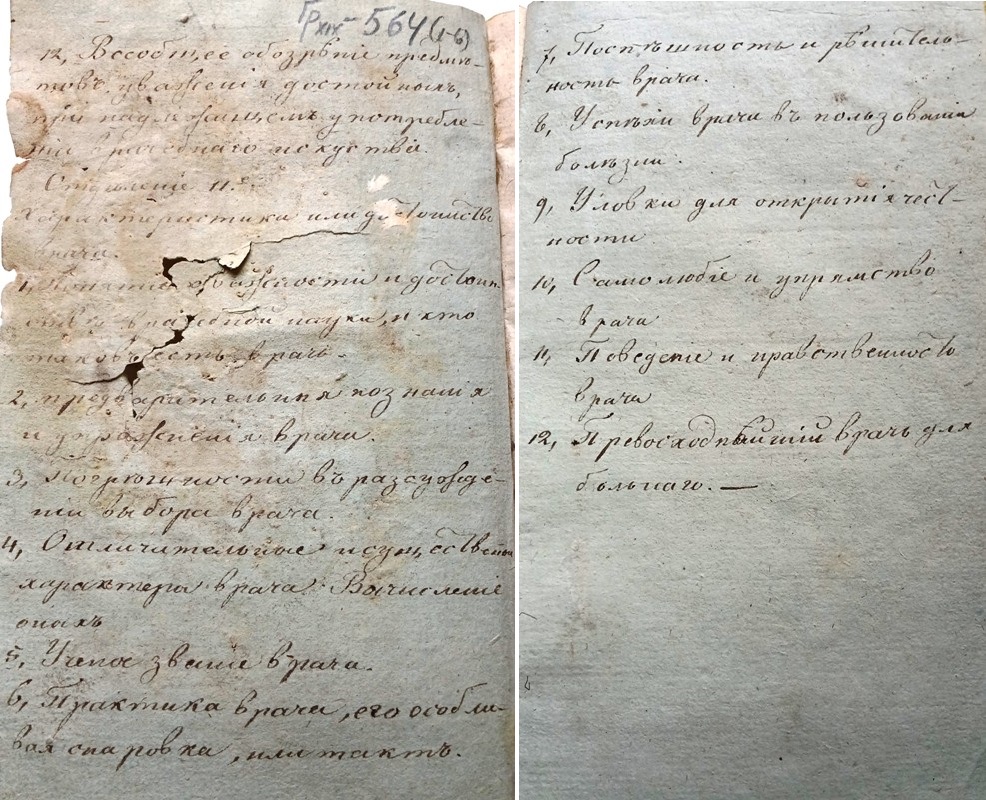 Гр XIX 564 (1-6)
12, Всеобщее обозрѣніе предмѣ-
товъ уваженія достойныхъ,
при надлежащемъ употребле-
ніи врачебнаго искуства.
Отдѣленіе 11.е
Характеристика или достоинство
врача.
1, Понятіе о важности и достоин-
ствѣ врачебной науки, и кто
таковъ есть врачь.
2, предварительныя познанія
и упражненія врача.
3, Погрѣшности въ разсужде-
ніи выбора врача.
4, Отличительные и существенные
характеры врача. Вычисленіе
оныхъ
5, Ученое званіе врача.
6, Практика врача, его особли-
вая снаровка, или тактъ.
7, Поспѣшность и рѣшитель-
ность врача.
8, Успѣхи врача въ пользованіи
болѣзни.
9, Уловки для открытія чест-
ности
10, Самолюбіе и упрямство
врача
11, Поведеніе и нравственность
врача
12, Превосходнѣйшій врачь для
больнаго. —